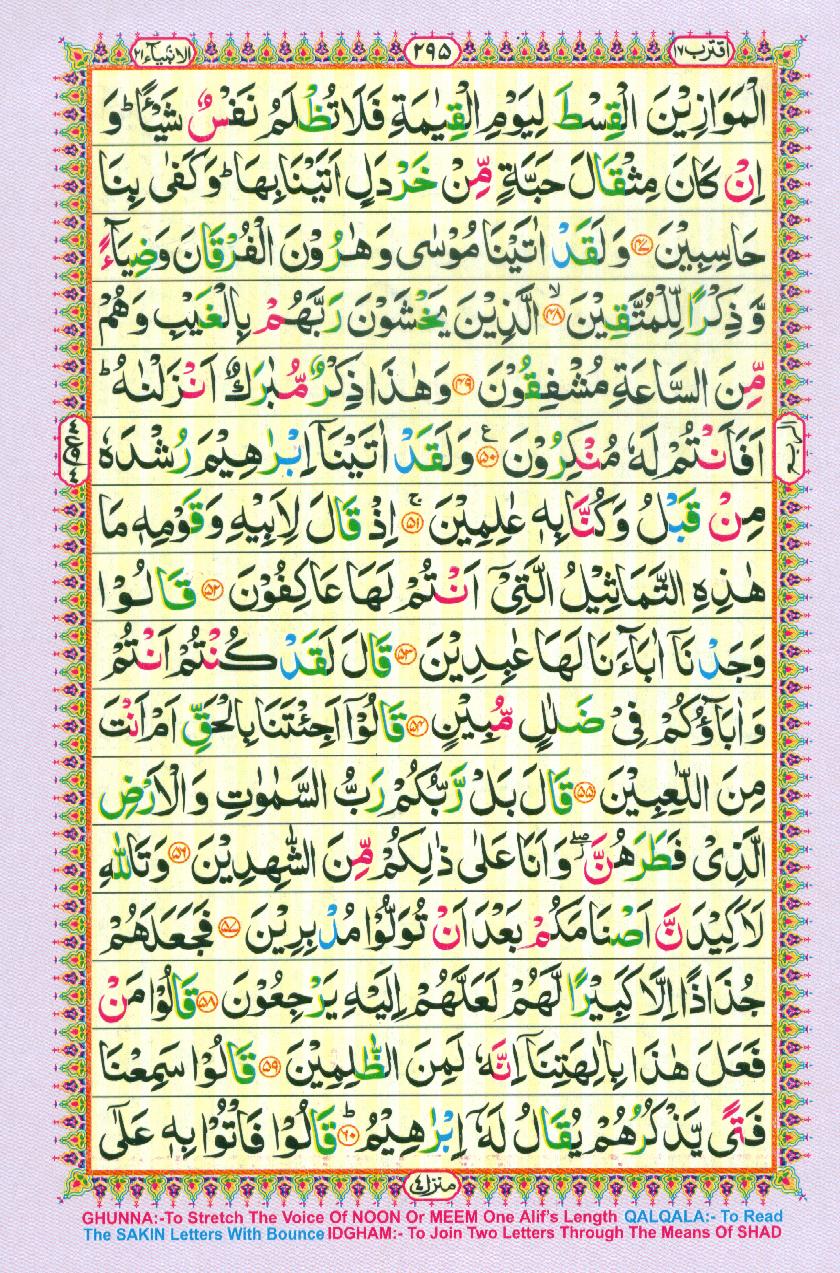 اقترب ١٧
٢٩٥
الانبیآء ٢١
الْمَوَازِیْنَ الْقِسْطَ لِیَوْمِ الْقِیٰمَةِ فَلَا تُظْلَمُ نَفْسٌ شَیْـًٔا ؕ وَ
اِنْ كَانَ مِثْقَالَ حَبَّةٍ مِّنْ خَرْدَلٍ اَتَیْنَا بِهَا ؕ وَ كَفٰی بِنَا
حَاسِبِیْنَ ﴿٤٧﴾ وَ لَقَدْ اٰتَیْنَا مُوْسٰی وَ هٰرُوْنَ الْفُرْقَانَ وَ ضِیَآءً
وَّ ذِكْرًا لِّلْمُتَّقِیْنَ ﴿٤٨﴾ ۙ الَّذِیْنَ یَخْشَوْنَ رَبَّهُمْ بِالْغَیْبِ وَ هُمْ
مِّنَ السَّاعَةِ مُشْفِقُوْنَ ﴿٤٩﴾ وَ هٰذَا ذِكْرٌ مُّبٰرَكٌ اَنْزَلْنٰهُ ؕ
اَفَاَنْتُمْ لَهٗ مُنْكِرُوْنَ ﴿٥٠﴾ ع وَ لَقَدْ اٰتَیْنَاۤ اِبْرٰهِیْمَ رُشْدَهٗ
مِنْ قَبْلُ وَ كُنَّا بِهٖ عٰلِمِیْنَ ﴿٥١﴾ ۚ اِذْ قَالَ لِاَبِیْهِ وَ قَوْمِهٖ مَا
هٰذِهِ التَّمَاثِیْلُ الَّتِیْۤ اَنْتُمْ لَهَا عَاكِفُوْنَ ﴿٥٢﴾ قَالُوْا
وَجَدْنَاۤ اٰبَآءَنَا لَهَا عٰبِدِیْنَ ﴿٥٣﴾ قَالَ لَقَدْ كُنْتُمْ اَنْتُمْ
وَ اٰبَآؤُكُمْ فِیْ ضَلٰلٍ مُّبِیْنٍ ﴿٥٤﴾ قَالُوْۤا اَجِئْتَنَا بِالْحَقِّ اَمْ اَنْتَ
مِنَ اللّٰعِبِیْنَ ﴿٥٥﴾ قَالَ بَلْ رَّبُّكُمْ رَبُّ السَّمٰوٰتِ وَ الْاَرْضِ
الَّذِیْ فَطَرَهُنَّ ۖ وَ اَنَا عَلٰی ذٰلِكُمْ مِّنَ الشّٰهِدِیْنَ ﴿٥٦﴾ وَ تَاللّٰهِ
لَاَكِیْدَنَّ اَصْنَامَكُمْ بَعْدَ اَنْ تُوَلُّوْا مُدْبِرِیْنَ ﴿٥٧﴾ فَجَعَلَهُمْ
جُذَاذًا اِلَّا كَبِیْرًا لَّهُمْ لَعَلَّهُمْ اِلَیْهِ یَرْجِعُوْنَ ﴿٥٨﴾ قَالُوْا مَنْ
فَعَلَ هٰذَا بِاٰلِهَتِنَاۤ اِنَّهٗ لَمِنَ الظّٰلِمِیْنَ ﴿٥٩﴾ قَالُوْا سَمِعْنَا
فَتًی یَّذْكُرُهُمْ یُقَالُ لَهٗۤ اِبْرٰهِیْمُ ﴿٦٠﴾ ؕ قَالُوْا فَاْتُوْا بِهٖ عَلٰۤی
منزل ٤
GHUNNA:-To Stretch The Voice Of NOON Or MEEM One Alif's Length QALQALA:- To Read
The SAKIN Letters With Bounce IDGHAM:- To Join Two Letters Through The Means Of SHAD